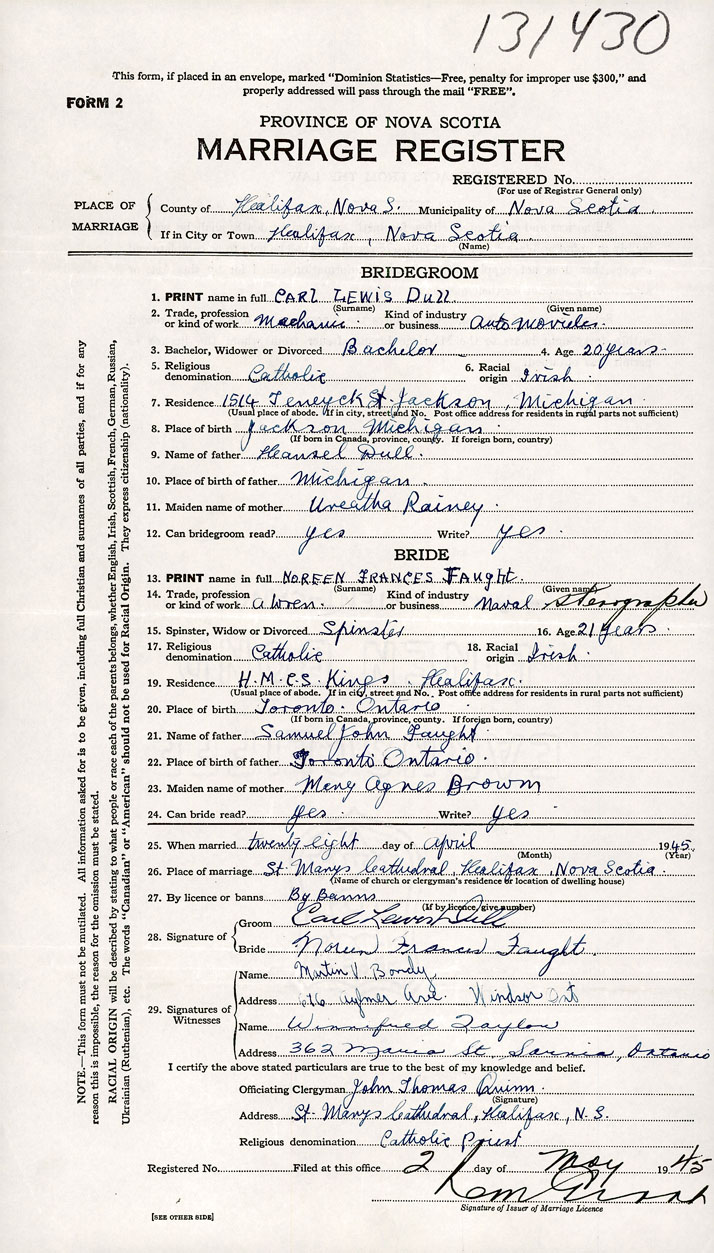 131430
This form, if placed in an envelope, marked "Dominion Statistics—Free, penalty for improper use $300," and
properly addressed will pass through the mail "FREE".
FORM 2
PROVINCE OF NOVA SCOTIA
MARRIAGE REGISTER
REGISTERED No.
(For use of Registrar General only)
PLACE OF MARRIAGE
County of Halifax, Nova S. Municipality of Nova Scotia.
If in City or Town Halifax, Nova Scotia.
(Name)
BRIDEGROOM
1. PRINT name in full CARL LEWIS Dull
(Surname) (Given name)
2. Trade, profession or kind of work Mechanic. Kind of industry or business
3. Bachelor, Widower or Divorced Bachelor 4. Age 20 years.
5. Religious denomination Catholic 6. Racial origin Irish.
7. Residence 1514 Teneyck St. Jackson, Michigan
(Usual place of abode. If in city, street and No. Post office address for residents in rural parts not sufficient)
8. Place of birth Jackson Michigan
(If born in Canada, province, county. If foreign born, country)
9. Name of father Hansel Dull.
10. Place of birth of father Michigan.
11. Maiden name of mother Ureatha Rainey.
12. Can bridegroom read? yes Write? yes.
BRIDE
13. PRINT name in full NOREEN FRANCES FAUGHT.
(Surname) (Given name)
14. Trade, profession or kind of work a Wren. Kind of industry or business Naval stenographer
15. Spinster, Widow or Divorced Spinster 16. Age 21 years.
17. Religious denomination Catholic 18. Racial origin Irish.
19. Residence H.M.C.S. Kings. Halifax.
(Usual place of abode. If in city, street and No. Post office address for residents in rural parts not sufficient)
20. Place of birth Toronto. Ontario
(If born in Canada, province, county. If foreign born, country)
21. Name of father Samuel John Faught.
22. Place of birth of father Toronto Ontario.
23. Maiden name of mother Mary Agnes Brown
24. Can bride read? yes. Write? yes
25. When married twenty eight day of April 1945.
(Month) (Year)
26. Place of marriage St. Marys Cathedral, Halifax, Nova Scotia.
(Name of church or clergyman's residence or location of dwelling house)
27. By licence or banns By Banns
(If by licence, give number)
28. Signature of
Groom Carl Lewis Dull
Bride Noreen Frances Faught.
29. Signatures of Witnesses
Name Martin V. Bondy
Address Aylmer Ave. Windsor Ont
Name Winnifred Taylor
Address 362 Maria St. Sarnia, Ontario
I certify the above stated particulars are true to the best of my knowledge and belief.
Officiating Clergyman John Thomas Quinn.
(Signature)
Address St. Marys Cathedral, Halifax, N.S.
Religious denomination Catholic Priest
Registered No. Filed at this office 2 day of May 1945
Signature of Issuer of Marriage Licence
[SEE OTHER SIDE]
NOTE.—This form must not be mutilated. All information asked for is to be given, including full Christian and surnames of all parties, and if for any
reason this is impossible, the reason for the omission must be stated.
RACIAL ORIGIN will be described by stating to what people or race each of the parents belongs, whether English, Irish, Scottish, French, German, Russian,
Ukrainian (Ruthenian), etc. The words "Canadian" or "American" should not be used for Racial Origin. They express citizenship (nationality).